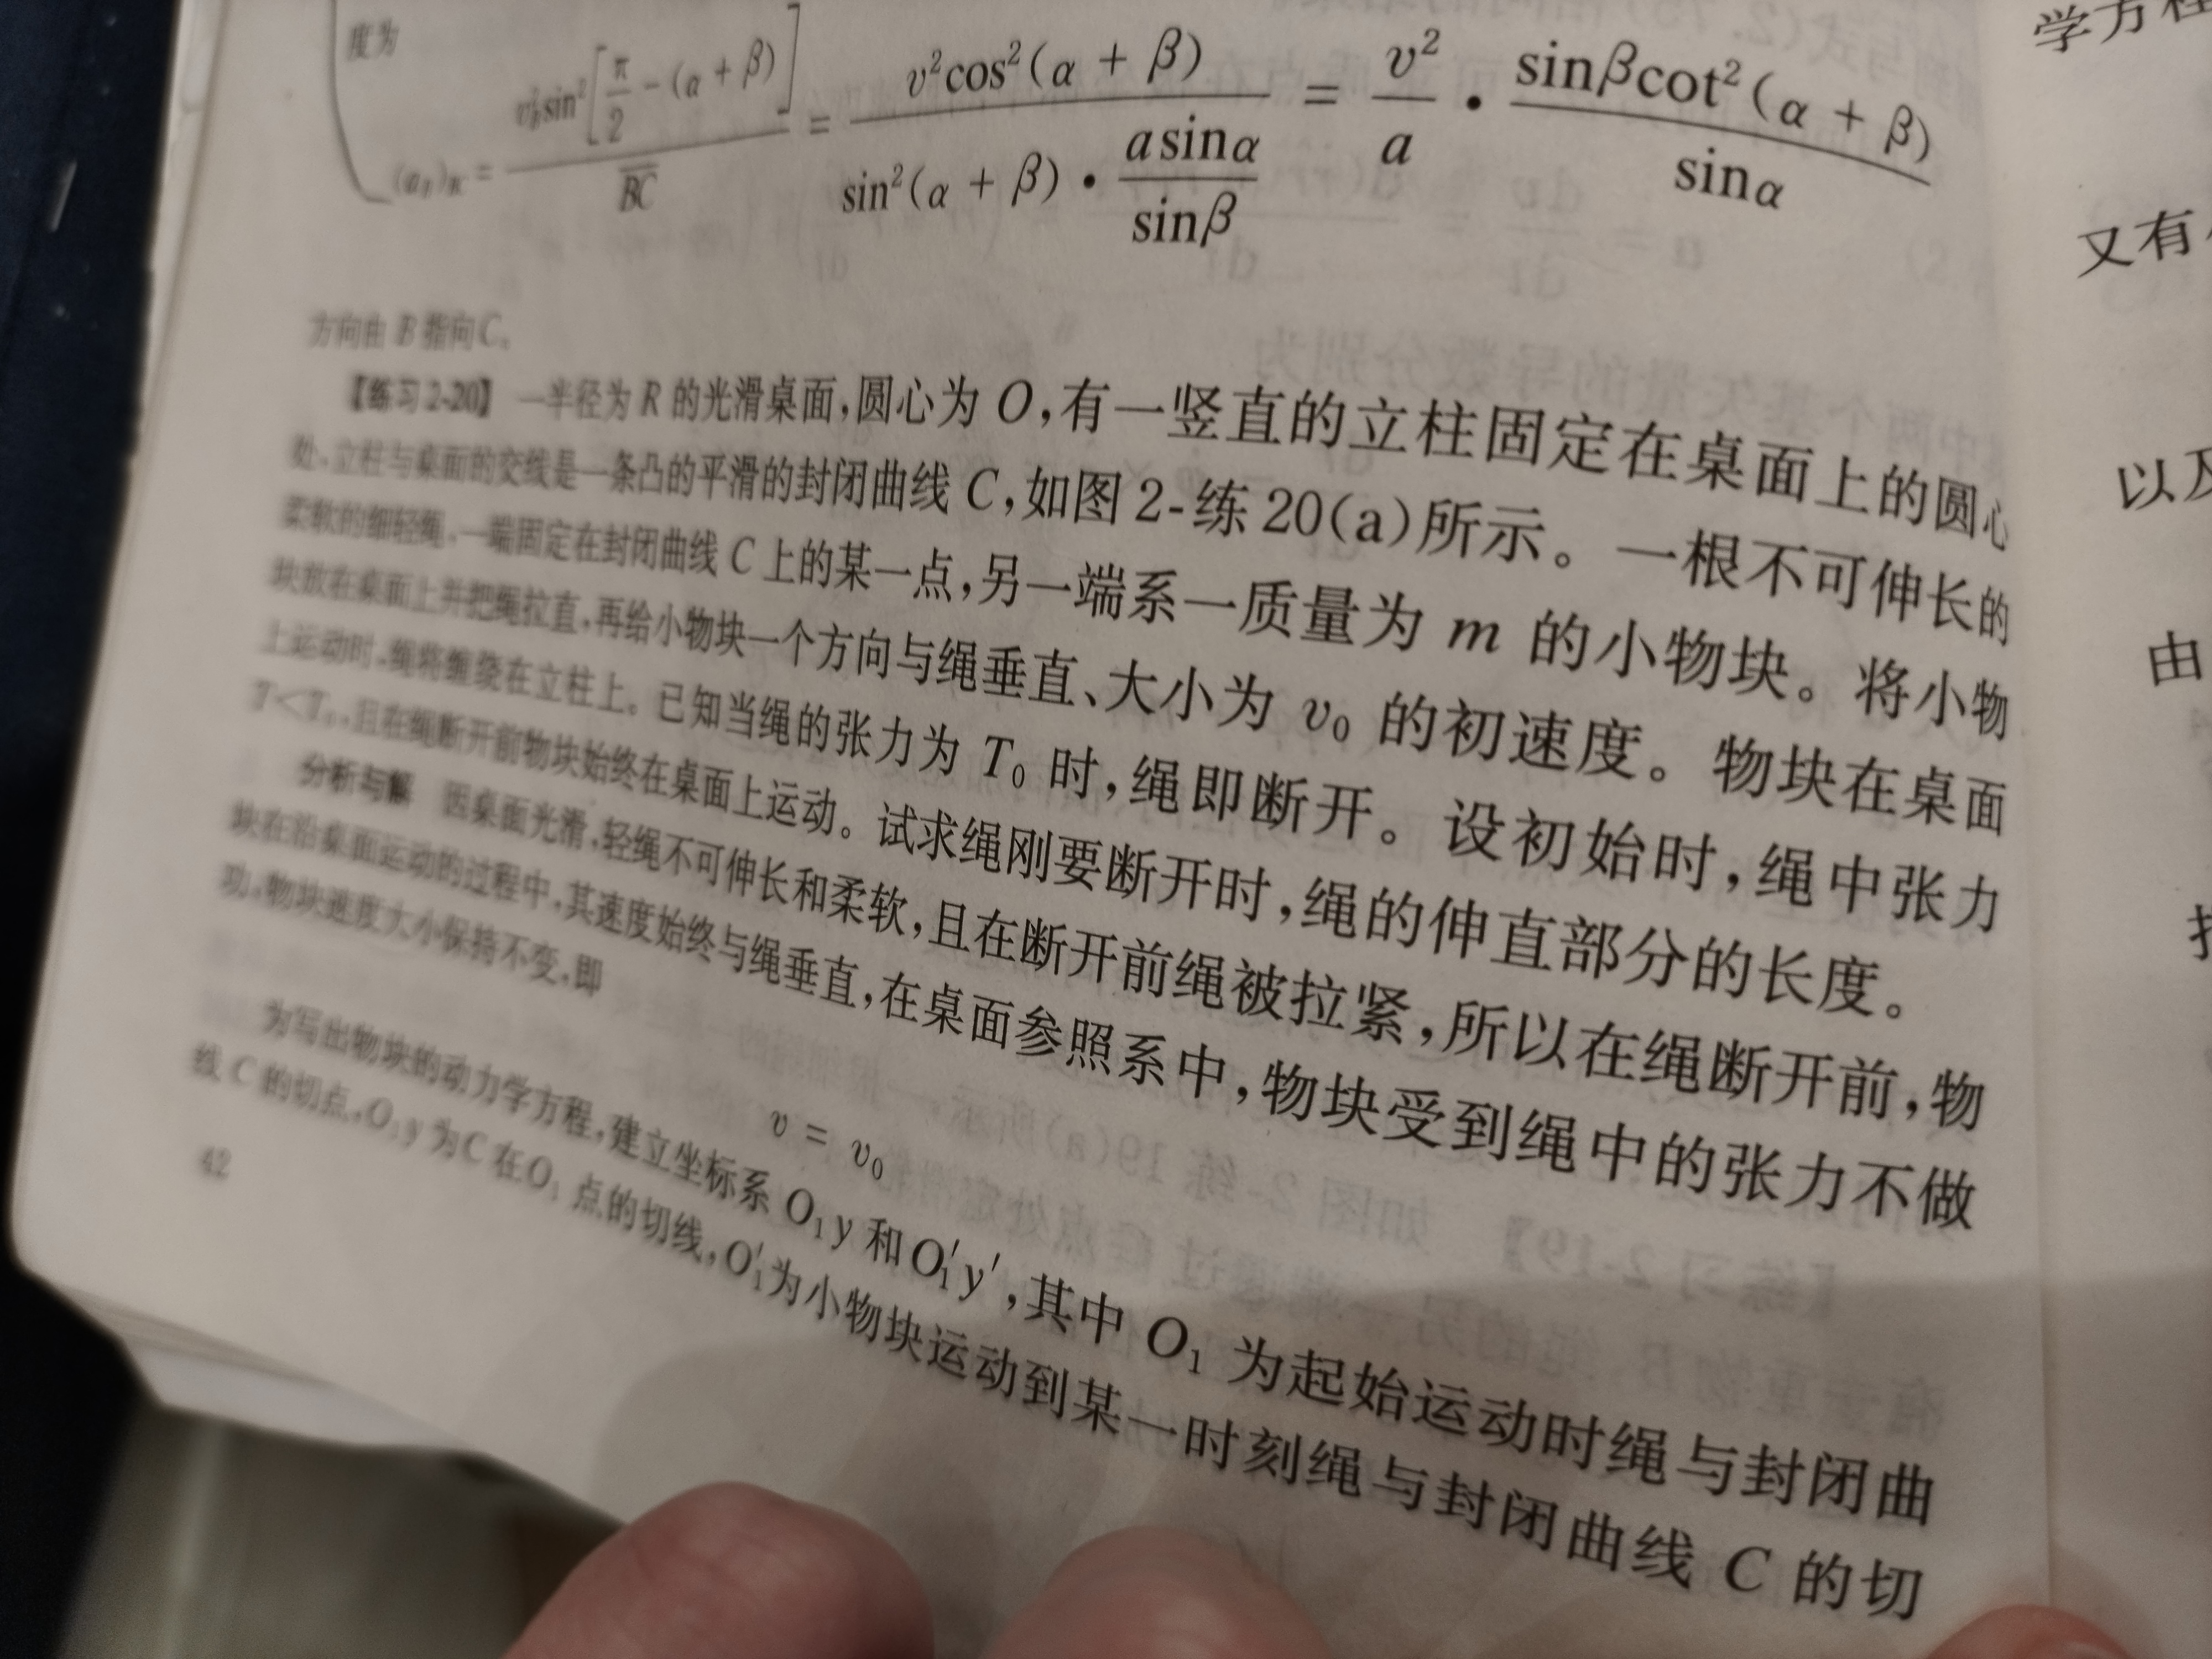 度为
(a_B)_n = v_B^2 sin^2[π/2 - (α + β)] / BC = v^2cos^2(α + β) / (sin^2(α + β) · asinα/sinβ) = v^2/a · sinβcot^2(α + β)/sinα
方向由 B 指向C。
【练习2-20】 一半径为 R 的光滑桌面,圆心为 O,有一竖直的立柱固定在桌面上的圆心
处,立柱与桌面的交线是一条凸的平滑的封闭曲线 C,如图 2-练 20(a)所示。一根不可伸长的
柔软的细轻绳,一端固定在封闭曲线 C 上的某一点,另一端系一质量为 m 的小物块。将小物
块放在桌面上并把绳拉直,再给小物块一个方向与绳垂直、大小为 v₀ 的初速度。物块在桌面
上运动时,绳将缠绕在立柱上。已知当绳的张力为 T₀ 时,绳即断开。设初始时,绳中张力
T<T₀,且在绳断开前物块始终在桌面上运动。试求绳刚要断开时,绳的伸直部分的长度。
分析与解 因桌面光滑,轻绳不可伸长和柔软,且在断开前绳被拉紧,所以在绳断开前,物
块在沿桌面运动的过程中,其速度始终与绳垂直,在桌面参照系中,物块受到绳中的张力不做
功,物块速度大小保持不变,即
v = v₀
为写出物块的动力学方程,建立坐标系 O₁y 和O₁′y′,其中 O₁ 为起始运动时绳与封闭曲
线 C 的切点,O₁y 为C 在O₁ 点的切线,O₁′为小物块运动到某一时刻绳与封闭曲线 C 的切
42
学方程
又有
以及
由